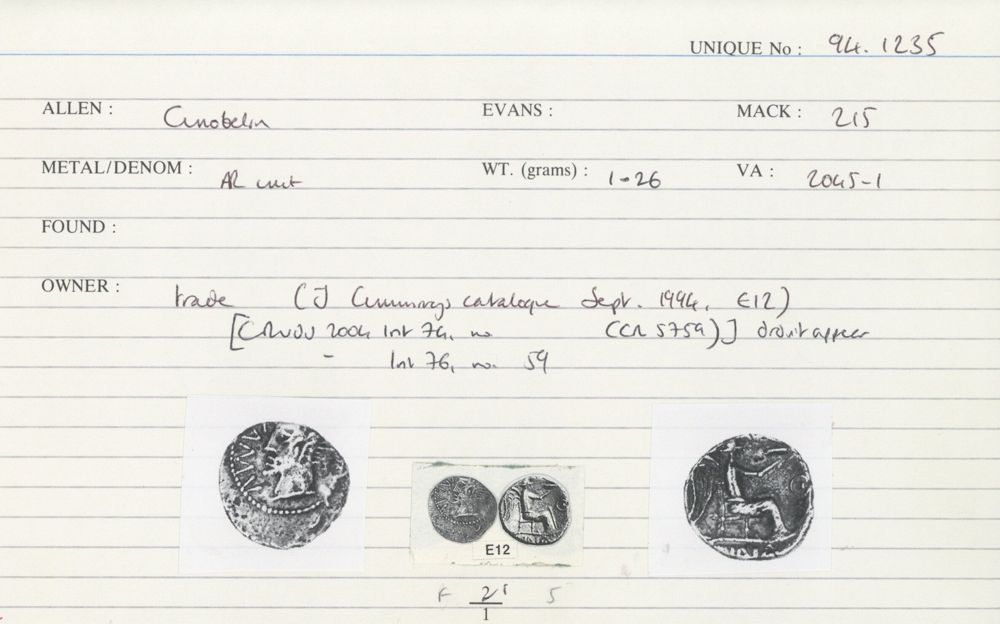 UNIQUE No : 94.1235
ALLEN : Cunobelin EVANS : MACK : 215
METAL/DENOM : AR unit WT. (grams) : 1-26 VA : 2045-1
FOUND :
OWNER : trade (J Cummings catalogue Sept. 1994, E12)
2004 Int 74, no (CR 5759)] appear
- Int 76, no. 59
E12
F 21 5
1